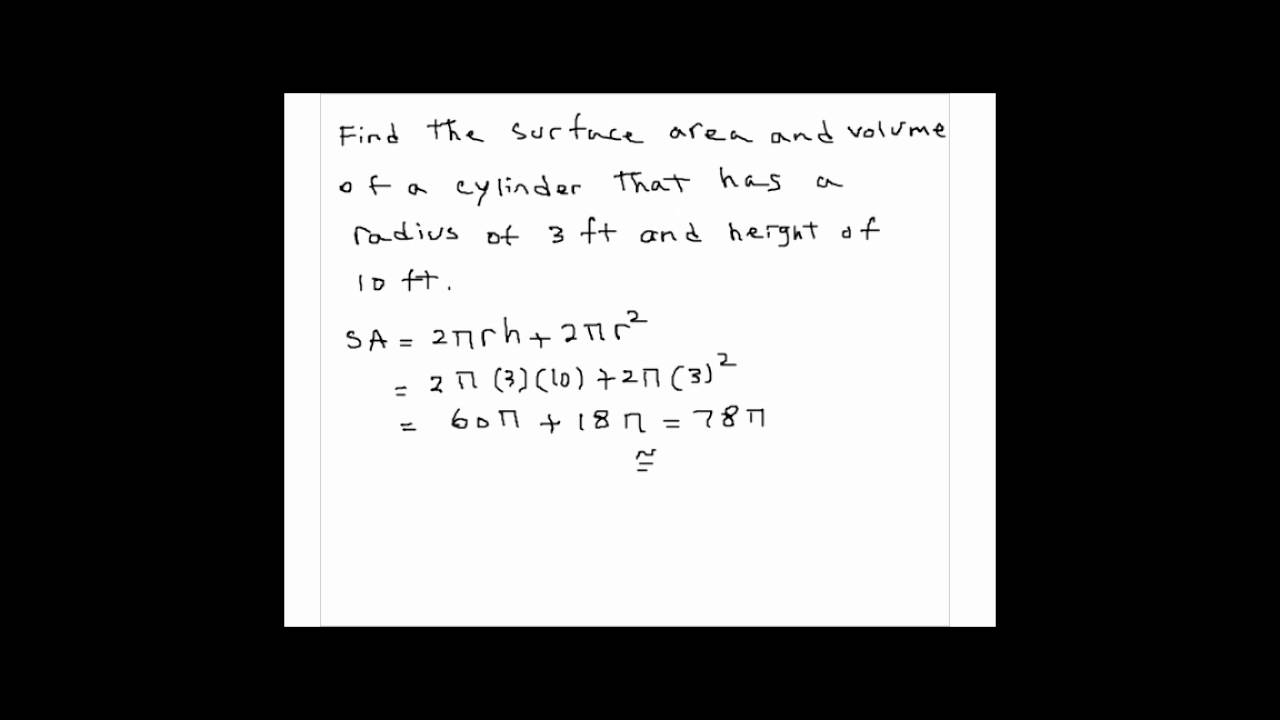 Find the surface area and volume
of a cylinder that has a
radius of 3 ft and height of
10 ft.
SA = 2πrh + 2πr²
= 2π(3)(10) + 2π(3)²
= 60π + 18π = 78π
≅